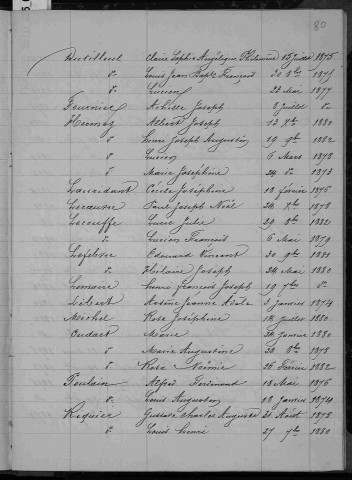 80
Claire Sophie Angélique Philomène 15 Juillet 1875
do Louis Jean Bapte François 30 8bre 1875
do Lucien 22 Mai 1877
Fournier Achille Joseph 2 Juillet do
Hennez Albert Joseph 12 Xbre 1880
do Henri Joseph Augustin 19 9bre 1882
do Lucien 6 Mars 1878
do Marie Joséphine 24 do 1873
Cécile Joséphine 18 février 1876
Paul Joseph Noël 24 Xbre 1878
Lescouffe Lucie Julie 29 8bre 1882
do Lucien François 6 Mai 1879
Lefebvre Edouard Vincent 30 9bre 1881
do Ghislaine Joseph 24 Mai 1880
Lemaire François Joseph 19 7bre do
Jeanne 3 Janvier 1874
Michel Rose Joséphine 18 Juillet 1880
Oudart Marie 24 Janvier 1880
do Marie Augustine 30 8bre 1878
do Rose Noémie 26 Février 1882
Poulain Alfred Ferdinand 18 Mai 1876
do Louis Augustin 18 Janvier 1874
Gustave Charles Auguste 21 Août 1878
do Louis Henri 27 7bre 1880